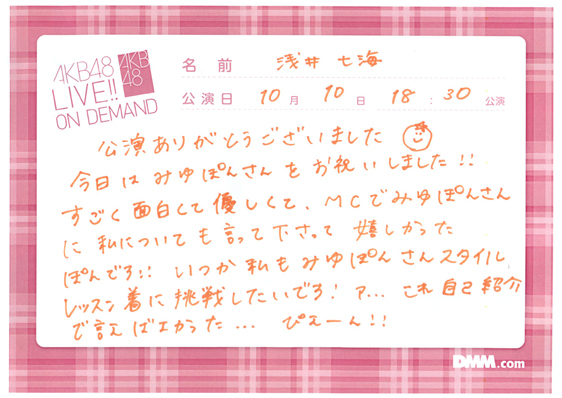 AKB48
LIVE!!
ON DEMAND
AKB
48
名 前 浅井 七海
公演日 10月 10日 18:30 公演
公演ありがとうございました
今日はみゆぽんさんをお祝いしました!!
すごく面白くて優しくて、MCでみゆぽんさん
に私についても言って下さって嬉しかった
ぽんです!! いつか私もみゆぽんさんスタイル、
レッスン着に挑戦したいです! ア... これ自己紹介
で言えばよかった... ぴえーん!!
DMM.com